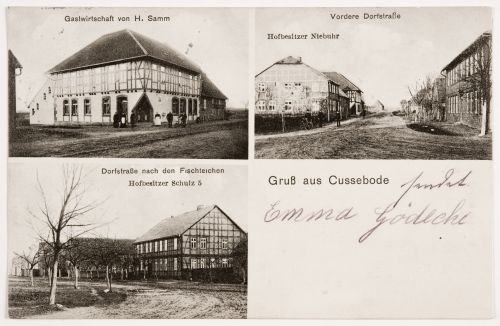 Gastwirtschaft von H. Samm
Vordere Dorfstraße
Hofbesitzer Niebuhr
Dorfstraße nach den Fischteichen
Hofbesitzer Schulz 5
Gruß aus Cussebode
sendet
Emma Gödecke